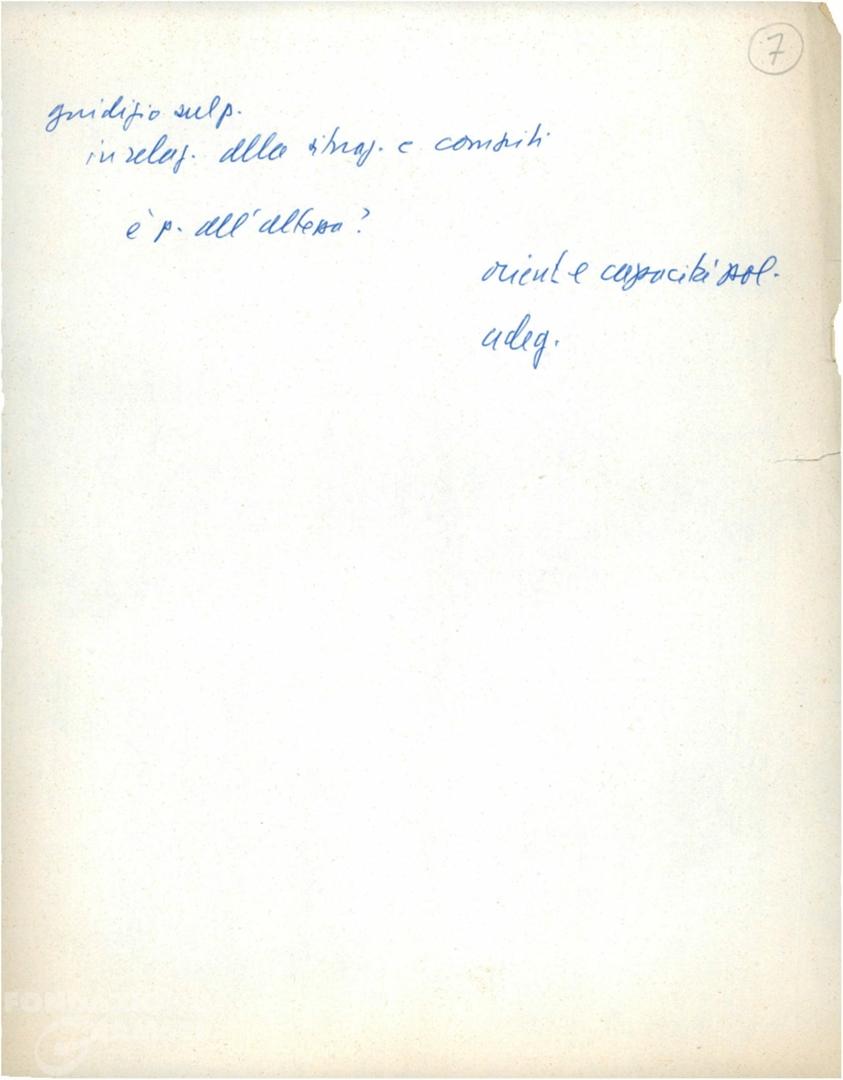 7
giudizio sul p.
in relaz. alla situaz. e compiti
è p. all'altezza?
orient e capacità pol.
adeg.
FONDAZIONE